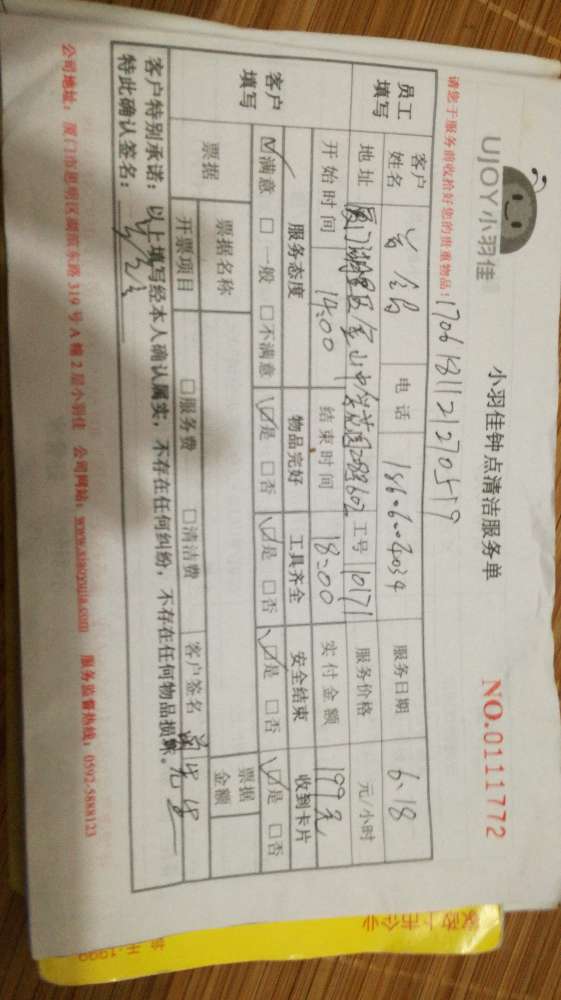 UJOY小羽佳
小羽佳钟点清洁服务单
NO.0111772
请您于服务前收拾好您的贵重物品！
1706181121270519
员工填写
客户姓名
电话
服务日期 6.18
地址
工号 10171
服务价格 元/小时
开始时间 14:00
结束时间 18:00
实付金额 199元
客户填写
服务态度 物品完好 工具齐全 安全结束 收到卡片
☑满意 □一般 □不满意 ☑是 □否 ☑是 □否 ☑是 □否 ☑是 □否
票据
票据名称
票据金额
开票项目 □服务费 □清洁费 客户签名
客户特别承诺：以上填写经本人确认属实，不存在任何纠纷，不存在任何物品损坏。
特此确认签名：
公司地址：厦门市思明区湖滨东路319号A幢2层小羽佳 公司网站：www.xiaoyujia.com 服务监督热线：0592-5888123
家政上市企业